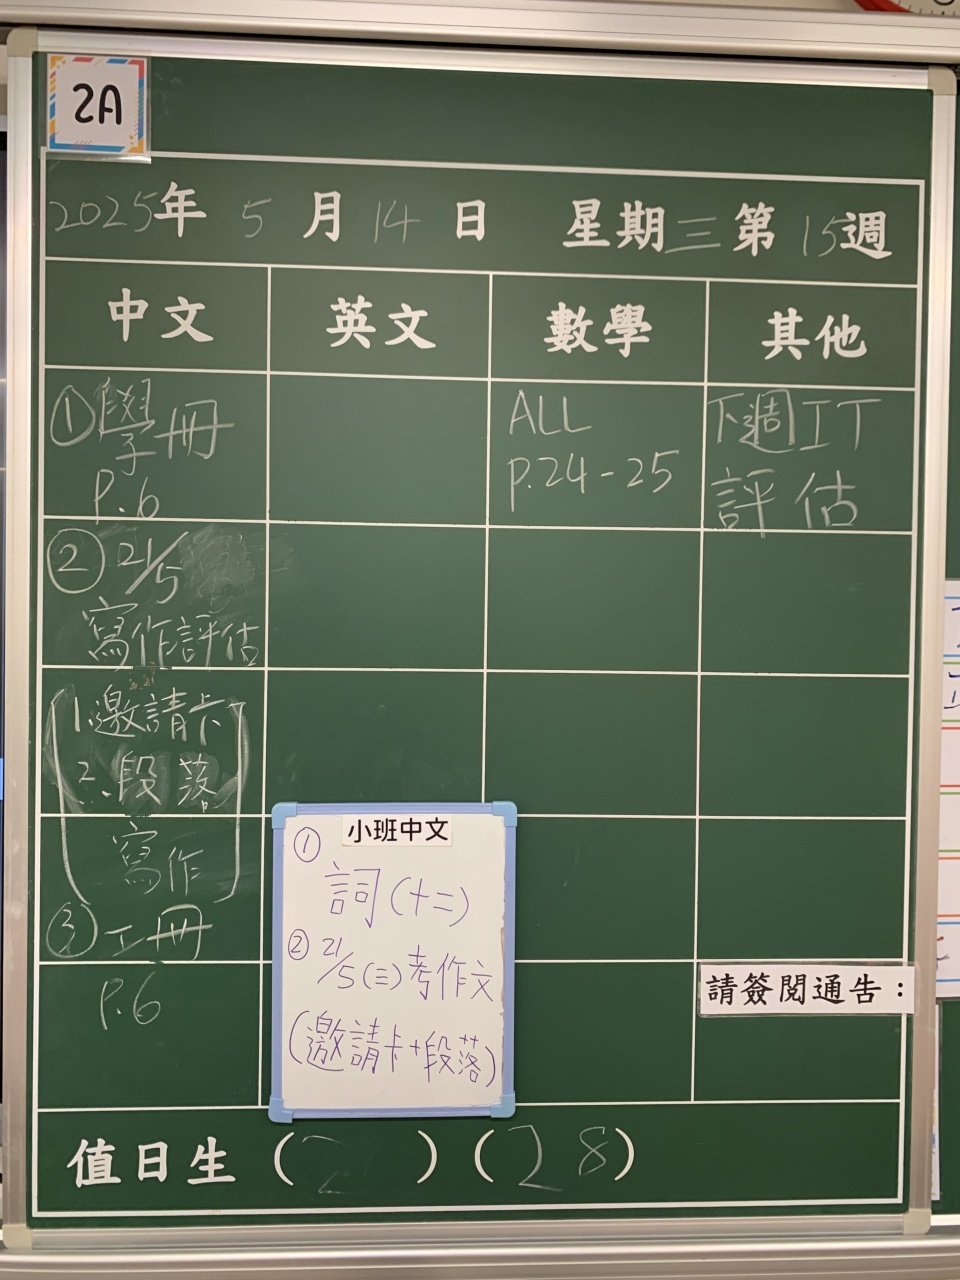 2A
2025年 5 月 14 日 星期三第 15週
中文 英文 數學 其他
①學冊
P.6
② 21/5
寫作評估
(1.邀請卡
2.段落
寫作)
③工冊
P.6
ALL
P.24-25
下週IT
評估
小班中文
①
詞(十二)
② 21/5(三)考作文
(邀請卡+段落)
請簽閱通告：
值日生 ( 2 ) ( 28 )